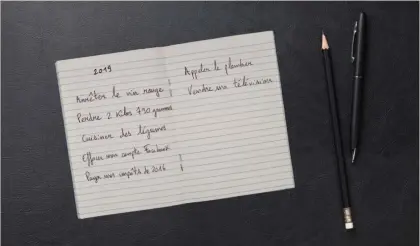 2019
Arrêter le vin rouge
Perdre 2 kilos 790 grammes
Cuisiner des légumes
Effacer mon compte Facebook
Payer mes impôts de 2014
Appeler le plombier
Vendre ma télévision